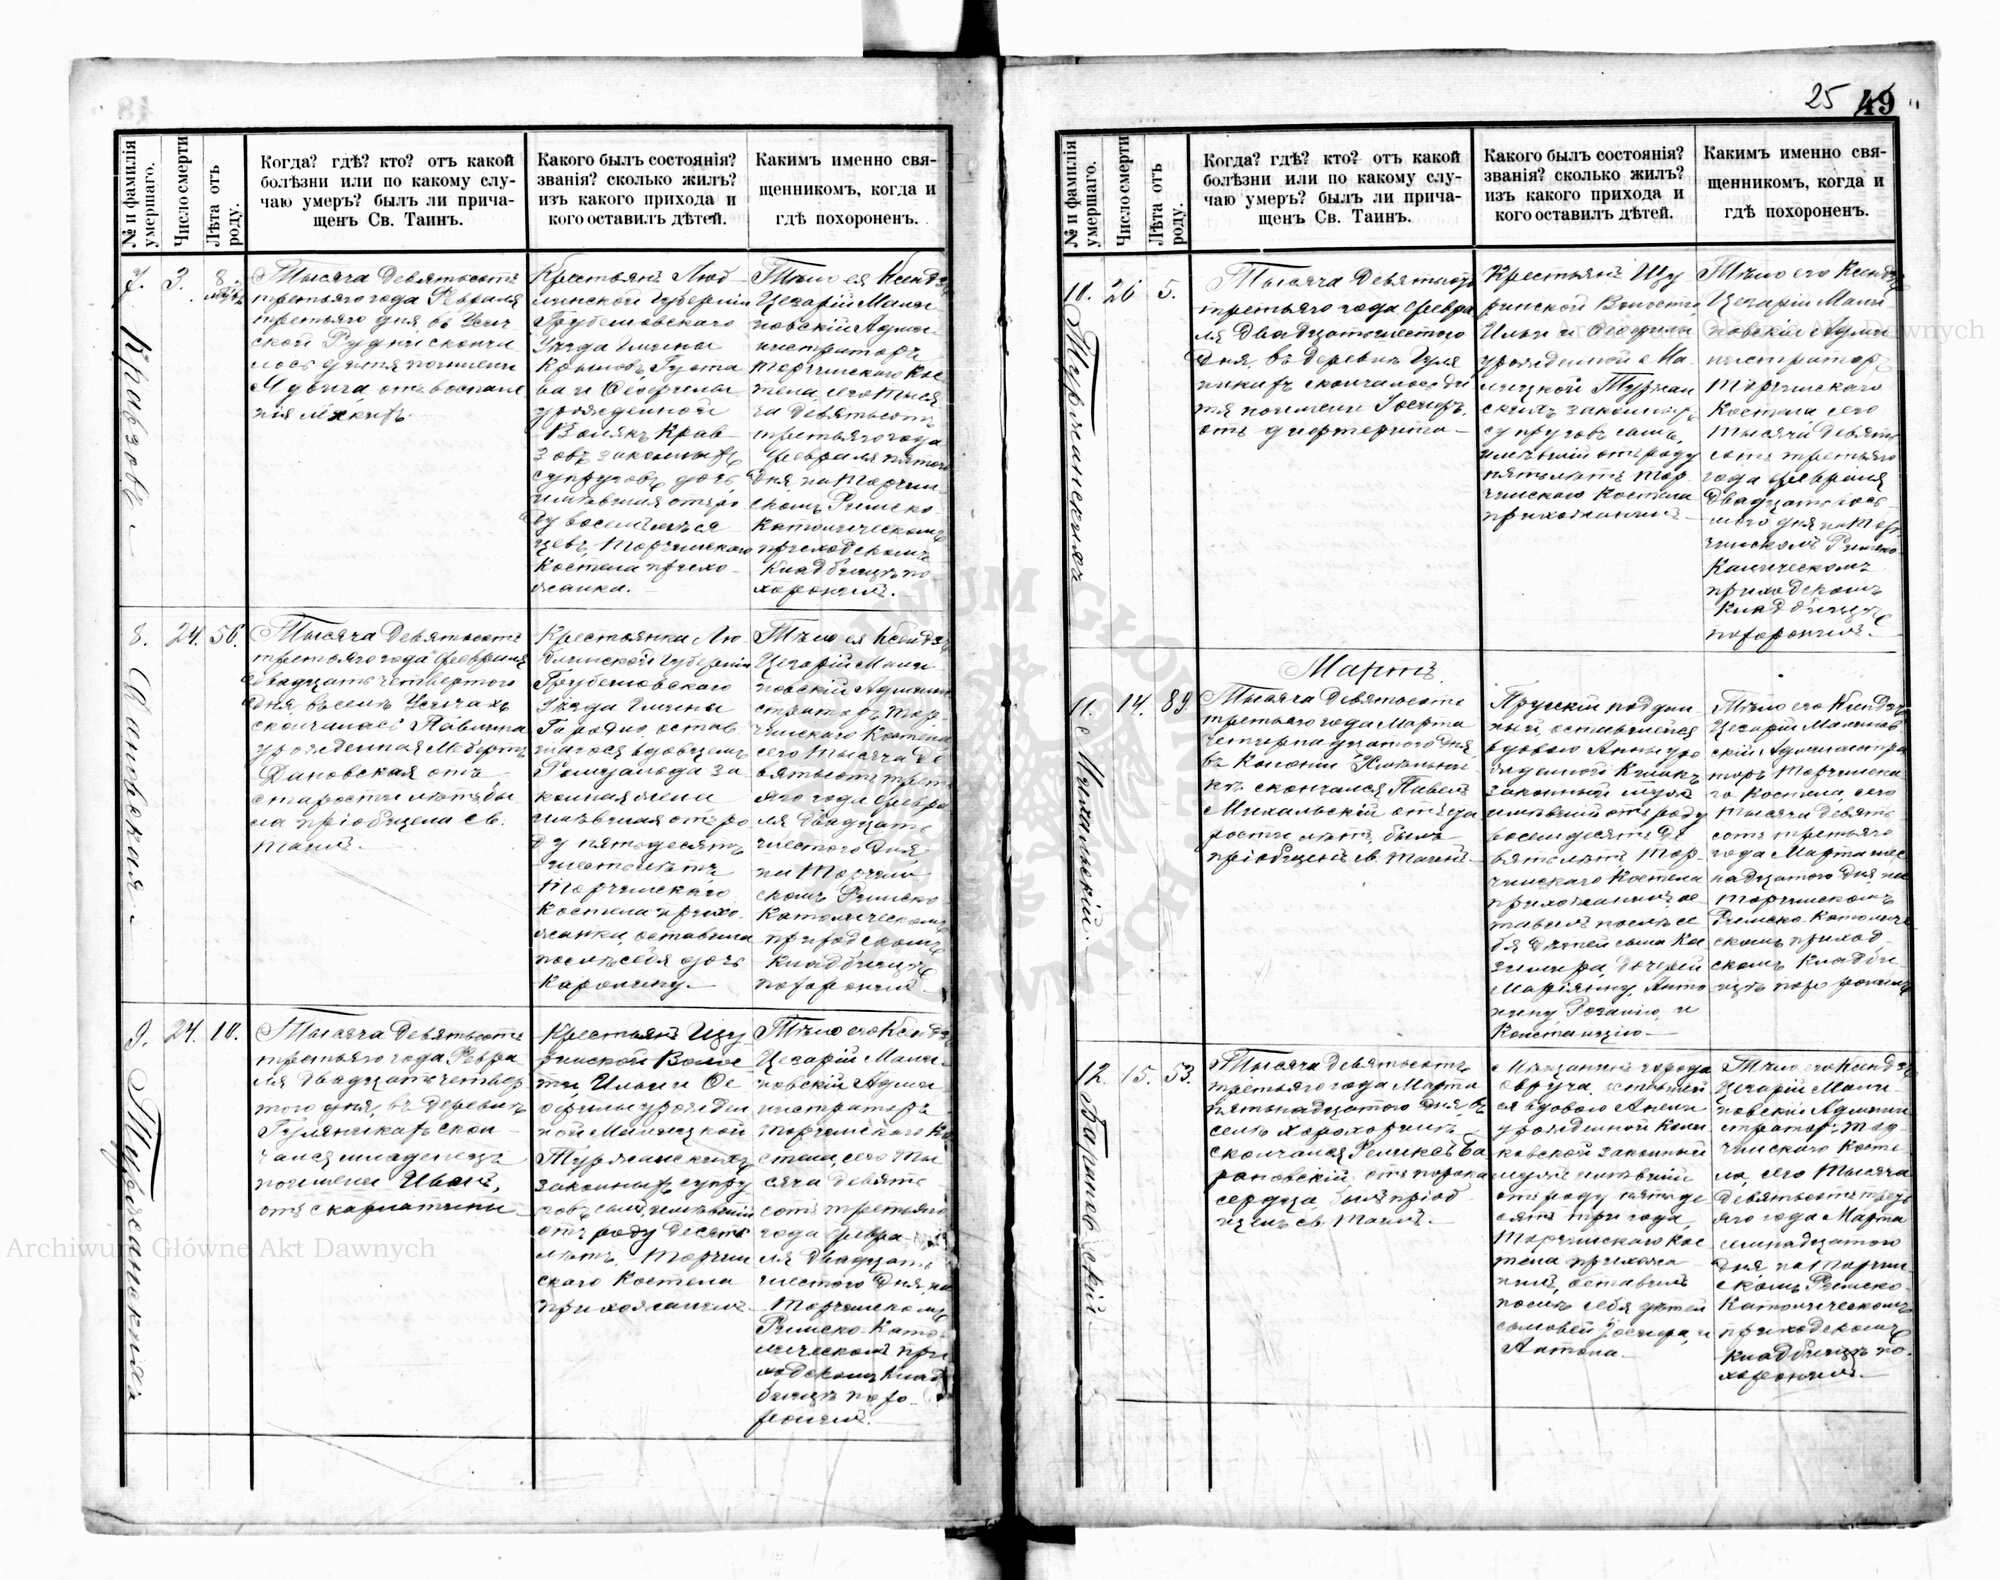 25 49
№ и фамилія умершаго.
Число смерти
Лѣта отъ роду.
Когда? гдѣ? кто? отъ какой
болѣзни или по какому слу-
чаю умеръ? былъ ли прича-
щенъ Св. Таинъ.
Какого былъ состоянія?
званія? сколько жилъ?
изъ какого прихода и
кого оставилъ дѣтей.
Какимъ именно свя-
щенникомъ, когда и
гдѣ похороненъ.
7.
Кравзовъ
3.
8
Тысяча девятьсотъ
третьяго года Февраля
третьяго дня, въ
ской Рудни сконча
лось дитя по имени
отъ воспале
нія
Крестьянъ Люб
линской Губерніи
Грубешовскаго
Уѣзда Гмины
Крыловъ Густа
ва и Теофилы
урожденной
Возякъ Крав
зовъ законныхъ
супруговъ дочь
имѣвшая отъ ро
ду восемь мѣся
цевъ, Торчинскаго
Костела прихо
жанка.
Тѣло ея Ксендзъ
Цезарій Мали
новскій Адми
нистраторъ
Торчинскаго Кос
тела, сего тыся
ча девятьсотъ
третьяго года
Февраля пятого
дня, на Торчин
скомъ Римско
Католическомъ
приходскомъ
кладбищѣ по
хоронилъ.
8.
Дановская
24.
56.
Тысяча девятьсотъ
третьяго года Февраля
двадцать четвертого
дня въ селѣ Усичахъ
скончалась Павлина
урожденная
Дановская отъ
старости лѣтъ бы
ла пріобщена св.
Таинъ.
Крестьянка Лю
блинской Губерніи
Грубешовскаго
Уѣзда Гмины
Городно, остав
шагося вдовцемъ
Ромуальда за
конная жена
имѣвшая отъ ро
ду пятьдесятъ
шесть лѣтъ
Торчинскаго
Костела прихо
жанка, оставила
послѣ себя дочь
Каролину.
Тѣло ея Ксендзъ
Цезарій Мали
новскій Админи
страторъ Тор
чинскаго Костела
сего тысяча де
вятьсотъ треть
яго года Февра
ля двадцать
шестого дня
на Торчин
скомъ Римско
Католическомъ
приходскомъ
кладбищѣ
похоронилъ.
9.
Туржанскихъ
24.
10.
Тысяча девятьсотъ
третьяго года Февра
ля двадцать четвер
того дня, въ деревнѣ
Гуляникахъ скон
чался младенецъ
по имени Иванъ,
отъ скарлатины
Крестьянъ Щу
ринской Волос
ти, Ильи и Те
офилы урожден
ной Малицкой
Туржанскихъ
законныхъ супру
говъ сынъ, имѣвшій
отъ роду десять
лѣтъ, Торчин
скаго Костела
прихожанинъ
Тѣло его Ксендзъ
Цезарій Мали
новскій Адми
нистраторъ
Торчинскаго Ко
стела, сего ты
сяча девять
сотъ третьяго
года Февра
ля двадцать
шестого дня, на
Торчинскомъ
Римско-Като
лическомъ при
ходскомъ клад
бищѣ похо
ронилъ.
№ и фамилія умершаго.
Число смерти
Лѣта отъ роду.
Когда? гдѣ? кто? отъ какой
болѣзни или по какому слу-
чаю умеръ? былъ ли прича-
щенъ Св. Таинъ.
Какого былъ состоянія?
званія? сколько жилъ?
изъ какого прихода и
кого оставилъ дѣтей.
Какимъ именно свя-
щенникомъ, когда и
гдѣ похороненъ.
10.
Туржанскихъ
26
5.
Тысяча девятьсотъ
третьяго года Февра
ля двадцать шестого
дня, въ деревнѣ Гуля
никахъ скончалось ди
тя по имени Іосифъ,
отъ дифтерита
Крестьянъ Щу
ринской Волости
Ильи и Теофили
урожденной Ма
лицкой Туржан
скихъ законныхъ
супруговъ сынъ,
имѣвшій отъ роду
пять лѣтъ Тор
чинскаго Костела
прихожанинъ
Тѣло его Ксендзъ
Цезарій Мали
новскій Адми
нистраторъ
Торчинскаго
Костела сего
тысяча девять
сотъ третьяго
года Февраля
двадцать вось
мого дня на Тор
чинскомъ Римско
приходскомъ
кладбищѣ
похоронилъ.
Мартъ.
11.
Михальскій.
14.
89
Тысяча девятьсотъ
третьяго года Марта
четырнадцатого дня,
въ Колоніи
скончался Павелъ
Михальскій отъ ста
рости лѣтъ, былъ
пріобщенъ св. Таинъ
Прусскій поддан
ный, оставшейся
вдовою Анны уро
жденной
законный мужъ
имѣвшій отъ роду
восемдесятъ де
вять лѣтъ, Тор
чинскаго Костела
прихожанинъ ос
тавилъ послѣ се
бя дѣтей сына Ка
зимира, дочерей
Маріянну, Анто
нину, Розалію, и
Констанцію
Тѣло его Ксендзъ
Цезарій Малинов
скій Администра
торъ Торчинска
го Костела, сего
тысяча девять
сотъ третьяго
года Марта шес
надцатого дня, на
Торчинскомъ
Римско-Католиче
скомъ приход
скомъ кладби
щѣ похоронилъ
12.
Барановскій
15.
53.
Тысяча девятьсотъ
третьяго года Марта
пятьнадцатого дня, въ
селѣ Хорохоринѣ
скончался Феликсъ Ба
рановскій, отъ порока
сердца, былъ пріоб
щенъ св. Таинъ.
Мѣщанинъ города
Овруча, оставшей
ся вдовою Анели
урожденной
законный
мужъ имѣвшій
отъ роду пятьде
сятъ три года,
Торчинскаго Кос
тела прихожа
нинъ, оставилъ
послѣ себя дѣтей
сыновей Іосифа, и
Антона
Тѣло его Ксендзъ
Цезарій Мали
новскій Админи
страторъ Тор
чинскаго Косте
ла, сего тысяча
девятьсотъ треть
яго года Марта
семнадцатого
дня на Торчин
скомъ Римско
Католическомъ
приходскомъ
кладбищѣ по
хоронилъ.
Archiwum Główne Akt Dawnych